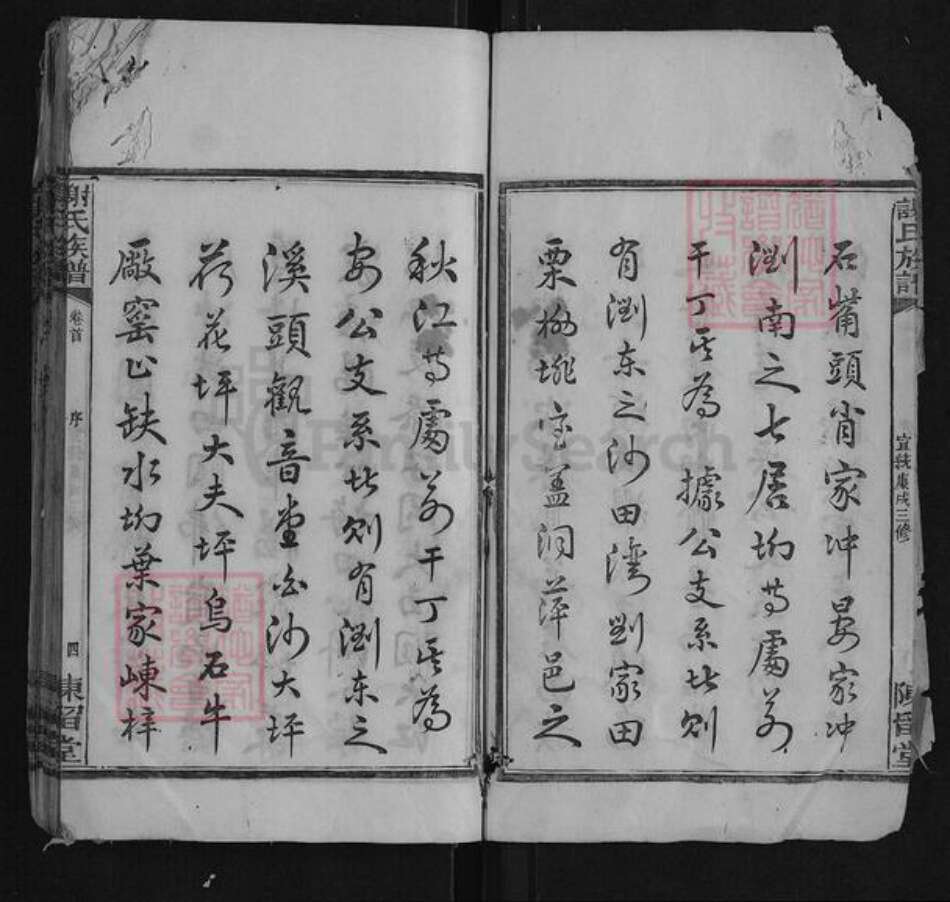 謝氏族譜
宣統庚戌三修
陳留堂
石嘴頭肖家冲晏家冲
瀏南之七居坳等處若
干丁其為據公支系此則
有瀏东之沙田灣劉家田
栗樹埦宝盖洞萍邑之
秋江等處若干丁其為
安公支系此則有瀏东之
溪頭觀音堂白沙大坪
荷花坪大夫坪烏石牛
廠窑上缺水坳葉家崠梓
謝氏族譜
卷首
序
四
陳留堂
FamilySearch